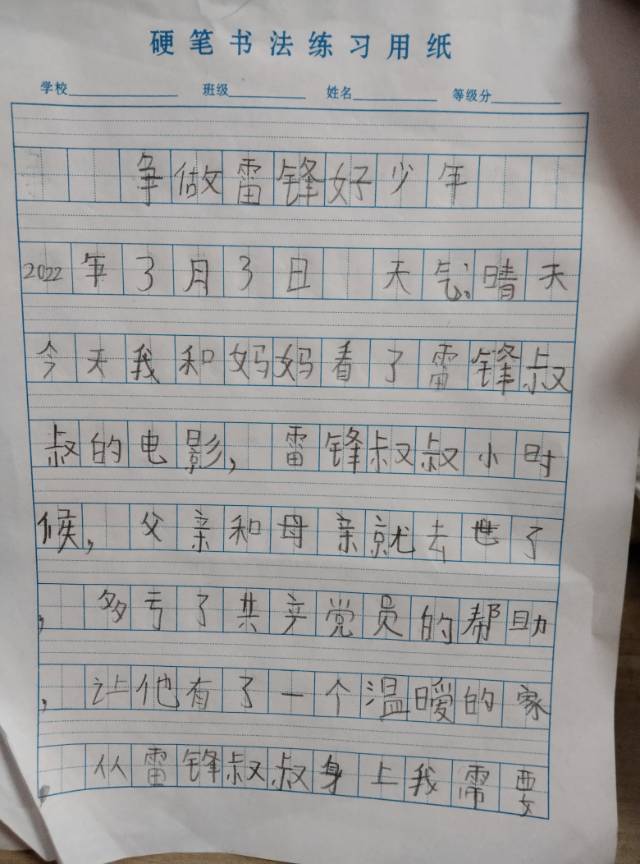 硬笔书法练习用纸
学校 班级 姓名 等级分
争做雷锋好少年
2022年3月3日 天气晴天
今天我和妈妈看了雷锋叔
叔的电影，雷锋叔叔小时
候，父亲和母亲就去世了
，多亏了共产党员的帮助
，让他有了一个温暖的家
，从雷锋叔叔身上我需要